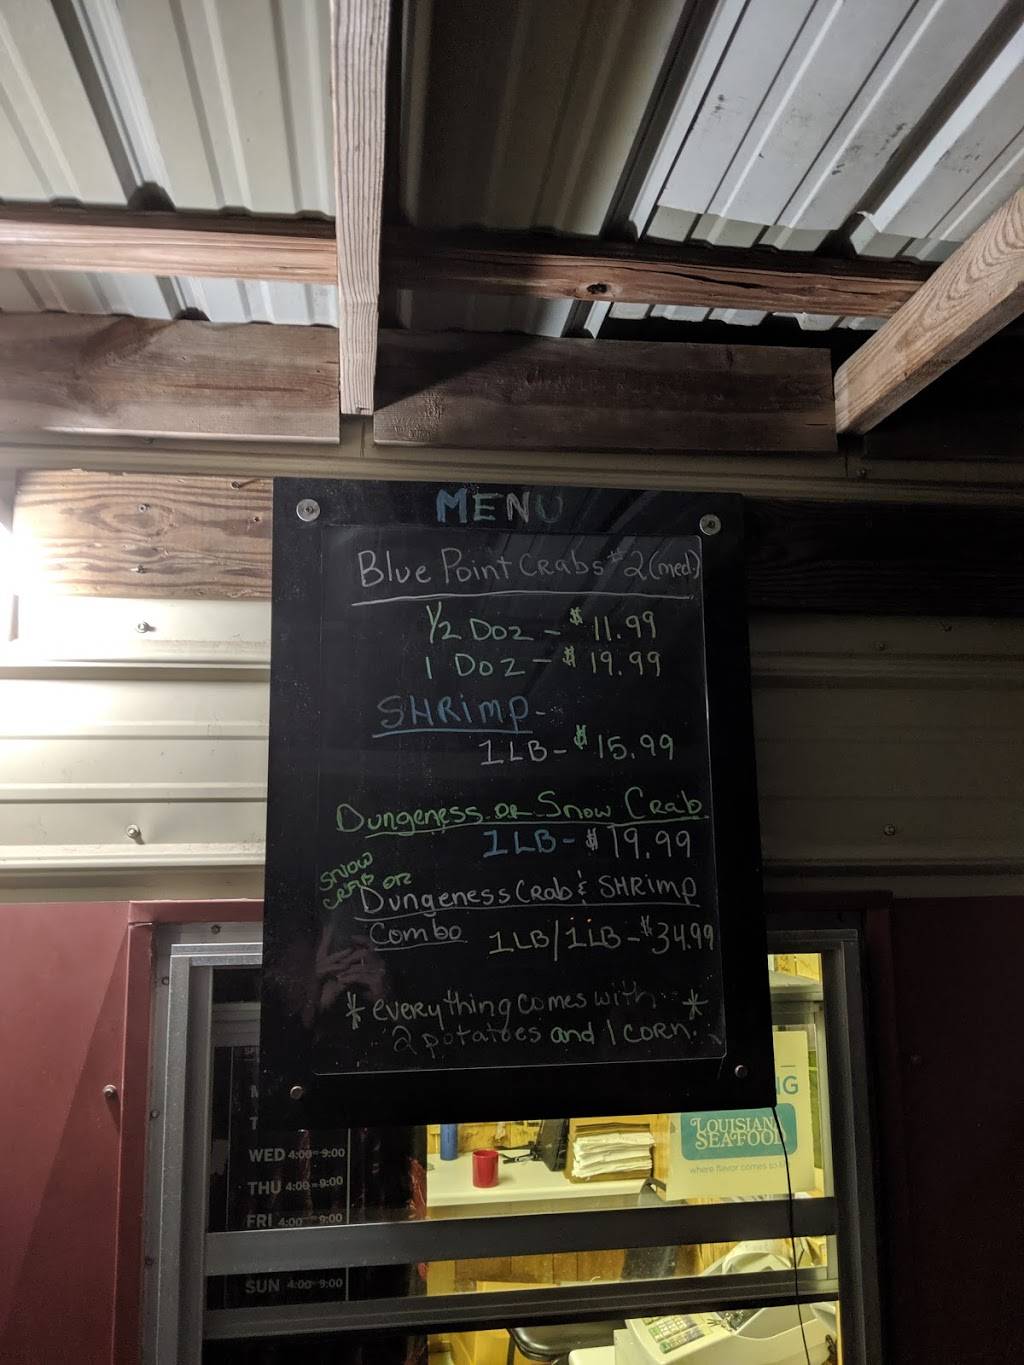 MENU
Blue Point Crabs #2 (med.)
1/2 Doz - $11.99
1 Doz - $19.99
SHRIMP -
1LB - $15.99
Dungeness or Snow Crab
1LB - $19.99
SNOW CRAB OR
Dungeness Crab & SHRIMP
Combo 1LB/1LB - $34.99
* everything comes with *
2 potatoes and 1 corn.
WED 4:00-9:00
THU 4:00-9:00
FRI 4:00 9:00
SUN 4:00-9:00
LOUISIANA
SEAFOOD
where flavor comes to